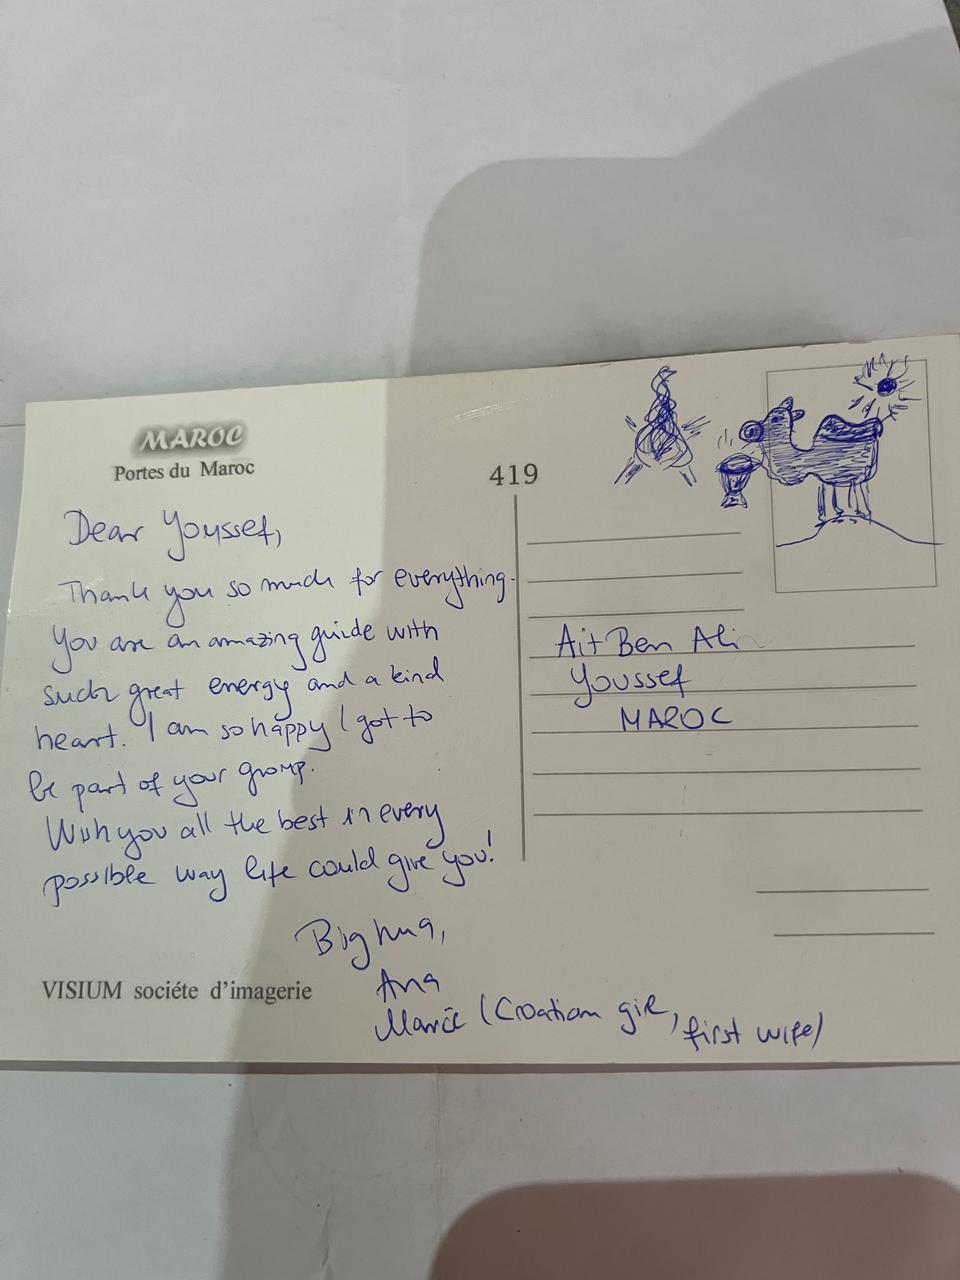 MAROC
Portes du Maroc
419
Dear Youssef,
Thank you so much for everything.
You are an amazing guide with
such great energy and a kind
heart. I am so happy I got to
be part of your group.
Wish you all the best in every
possible way life could give you!
Big hug,
Ana
(Croatian girl, first wife)
VISIUM sociéte d'imagerie
Ait Ben Ali
Youssef
MAROC